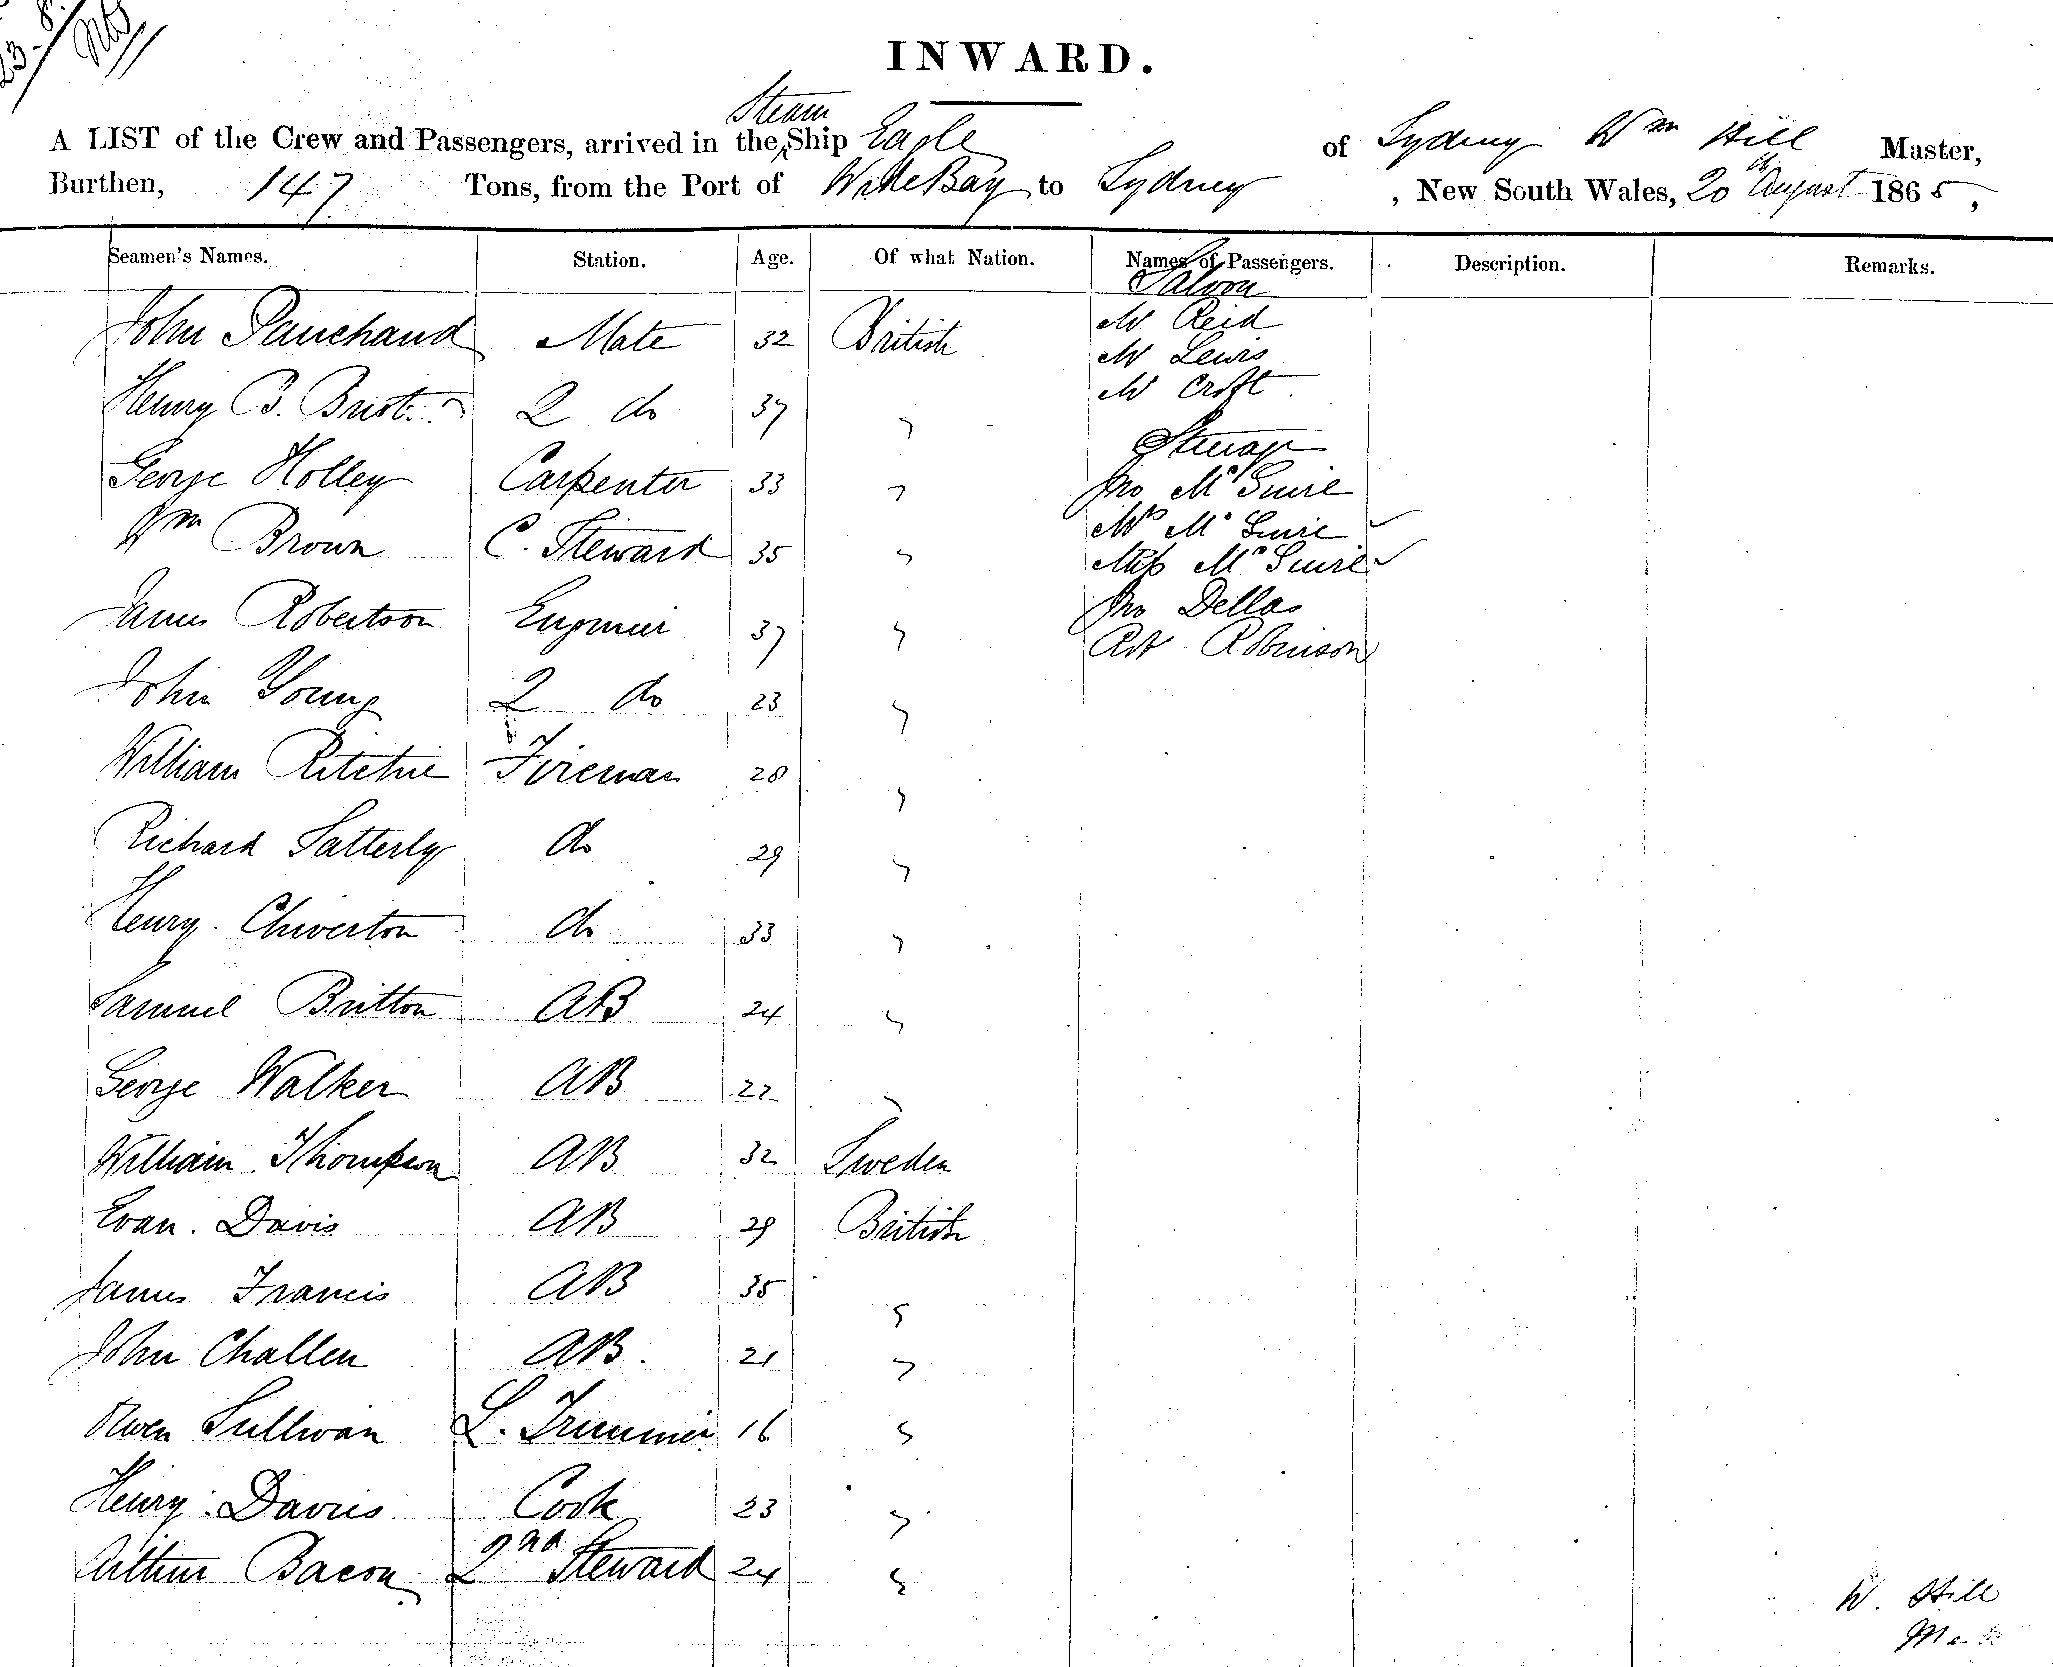 INWARD.
Steam
A LIST of the Crew and Passengers, arrived in the Ship Eagle of Sydney Wm Hill Master,
Burthen, 147 Tons, from the Port of Wide Bay to Sydney, New South Wales, 20th August 1865,
Seamen's Names. Station. Age. Of what Nation. Names of Passengers. Description. Remarks.
Saloon
John Mate 32 British Mr Reid
Mr Lewis
Henry B. 2 do 37 " Mr Croft
Steerage
George Holley Carpenter 33 " Jno McGuire
Wm Brown C. Steward 35 " Mrs McGuire
Miss McGuire
James Robertson Engineer 37 " Jno Dellas
Robt Robinson
John Young 2 do 23 "
William Ritchie Fireman 28 "
Richard Satterly do 29 "
Henry Chiverton do 33 "
Samuel Britton AB 24 "
George Walker AB 22 "
William Thompson AB 32 Sweden
Evan Davis AB 29 British
James Francis AB 35 "
John Challen AB. 21 "
Owen Sullivan Trimmer 16 "
Henry Davies Cook 23 "
Arthur Bacon 2nd Steward 24 "
W. Hill